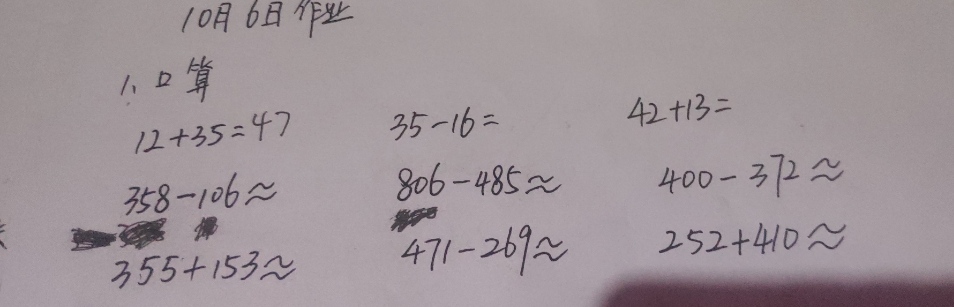 10月6日作业
1、口算
12+35=47 35-16= 42+13=
358-106≈ 806-485≈ 400-372≈
355+153≈ 471-269≈ 252+410≈